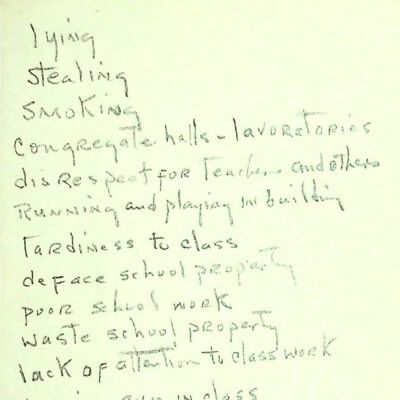 lying
stealing
smoking
congregate halls - lavoratories
disrespect for teachers and others
Running and playing in building
Tardiness to class
deface school property
poor school work
waste school property
lack of attention to classwork
in class